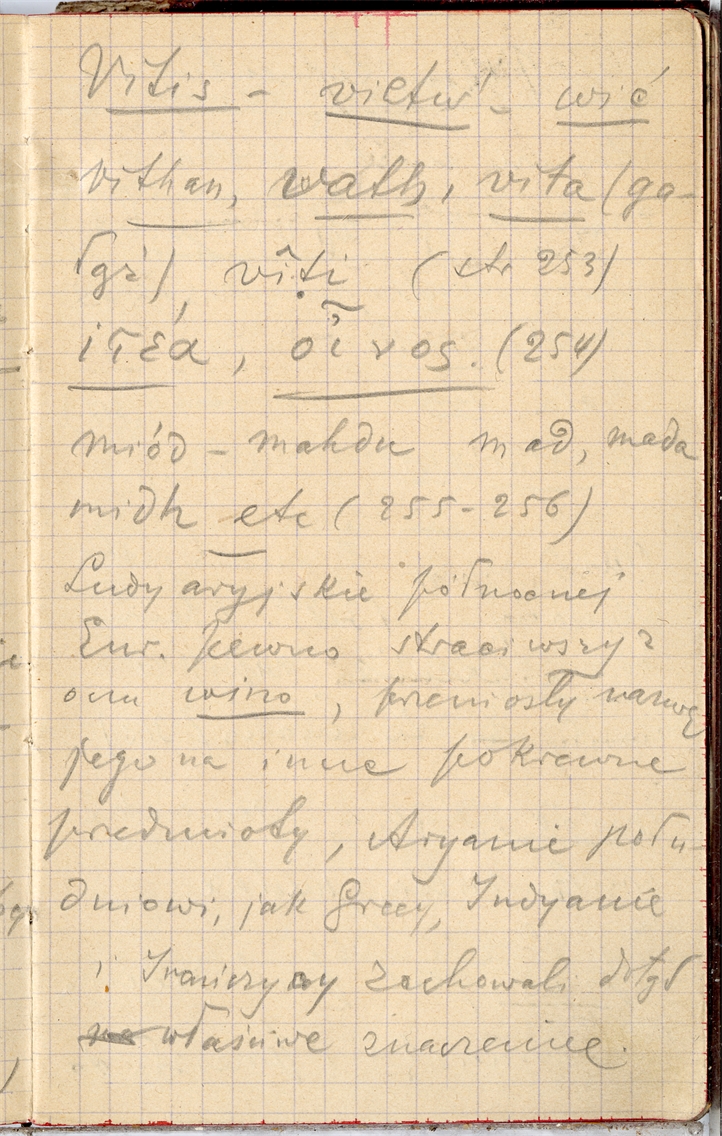 Vitis – vietw' – wić
vithan, wath, vita (ga-
łąź), vîti (str 253)
ἰτέα, οἶνος. (254)
miód – mahdu mad, mada
midh etc (255-256)
Ludy aryjskie północnej
Eur. pewno straciwszy z
oczu wino, przeniosły nazwę
jego na inne pokrewne
przedmioty, Aryanie połu-
dniowi, jak Grecy, Indyanie
i Irańczycy zachowali dotąd
właściwe znaczenie.